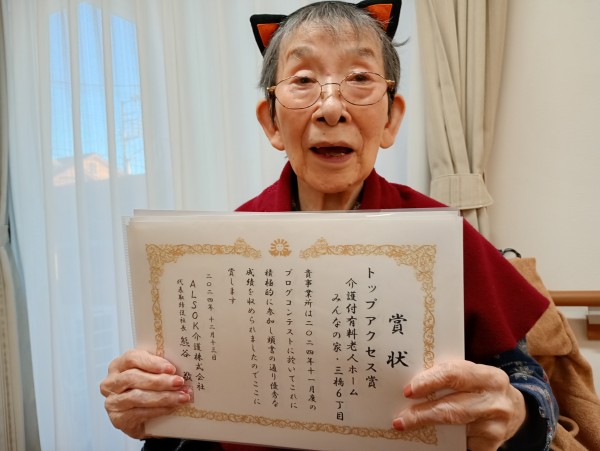 賞状
トップアクセス賞
介護付有料老人ホーム
みんなの家・三橋6丁目
貴事業所は二〇二四年十一月度の
ブログコンテストに於いてこれに
積極的に参加し頭書の通り優秀な
成績を収められましたのでここに
賞します
二〇二四年 十二月十三日
ALSOK介護株式会社
代表取締役社長 熊谷 敬